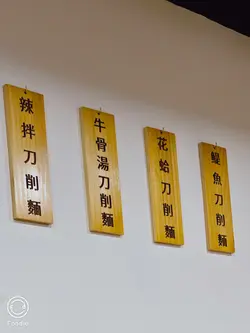 辣拌刀削麵
牛骨湯刀削麵
花蛤刀削麵
鯷魚刀削麵